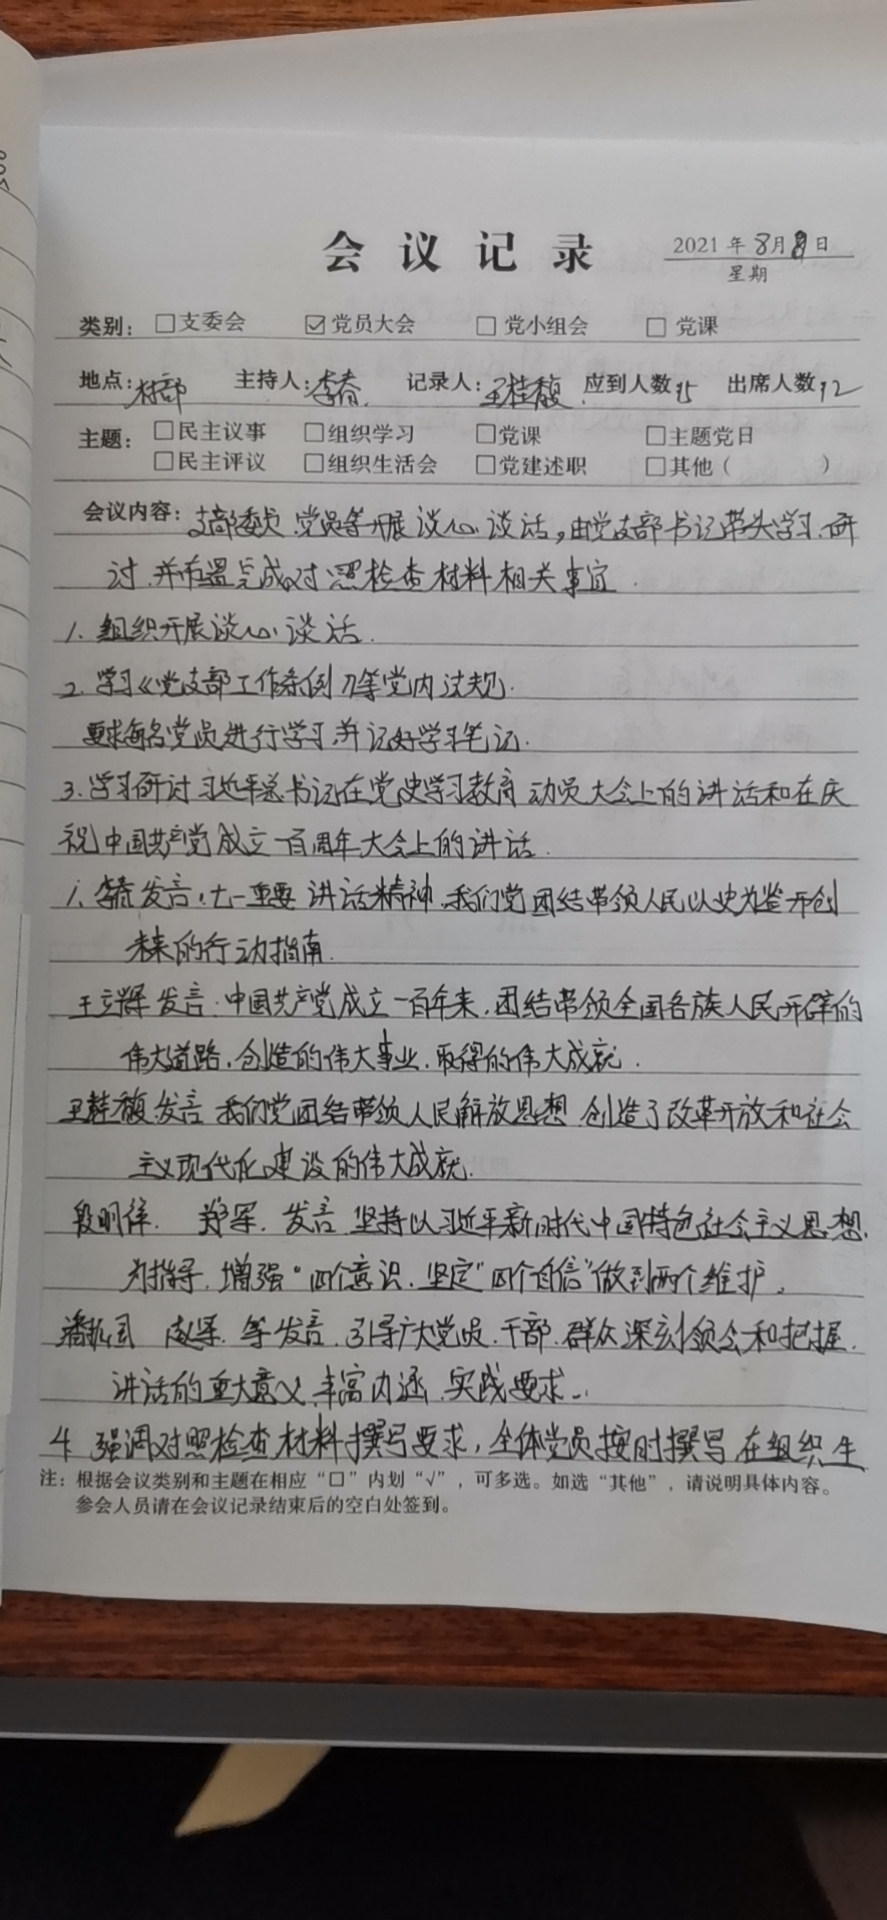 会议记录
2021年8月8日
星期
类别：□支委会 ☑党员大会 □党小组会 □党课
地点：村部 主持人：李春 记录人：王桂馥 应到人数15 出席人数12
主题：□民主议事 □组织学习 □党课 □主题党日
□民主评议 □组织生活会 □党建述职 □其他（ ）
会议内容：支部委员、党员等开展谈心谈话，由党支部书记带头学习、研
讨，并布置完成对照检查材料相关事宜．
1．组织开展谈心谈话．
2．学习《党支部工作条例》等党内法规．
要求每名党员进行学习并记好学习笔记．
3．学习研讨习近平总书记在党史学习教育动员大会上的讲话和在庆
祝中国共产党成立一百周年大会上的讲话．
1、李春发言：七一重要讲话精神，我们党团结带领人民以史为鉴开创
未来的行动指南．
王立辉发言：中国共产党成立一百年来，团结带领全国各族人民开辟的
伟大道路，创造的伟大事业，取得的伟大成就．
王桂馥发言 我们党团结带领人民解放思想 创造了改革开放和社会
主义现代化建设的伟大成就．
段明 郑军．发言 坚持以习近平新时代中国特色社会主义思想，
为指导，增强“四个意识，坚定“四个自信”做到两个维护。
潘 赵军．等发言．引导广大党员、干部、群众深刻领会和把握．
讲话的重大意义、丰富内涵、实践要求…
4．强调对照检查材料撰写要求，全体党员按时撰写，在组织生
注：根据会议类别和主题在相应“□”内划“√”，可多选。如选“其他”，请说明具体内容。
参会人员请在会议记录结束后的空白处签到。